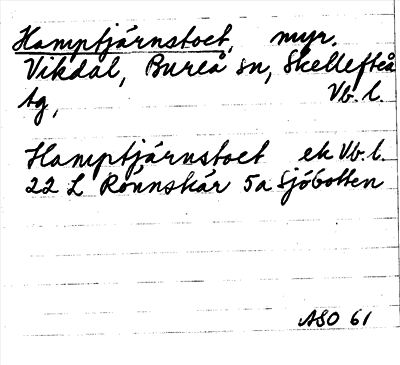 Hamptjärnstoet, myr.
Vikdal, Bureå sn, Skellefteå
tg, Vb. l.
Hamptjärnstoet ek Vb. l.
22 L Rönnskär 5a Sjöbotten
ASO 61